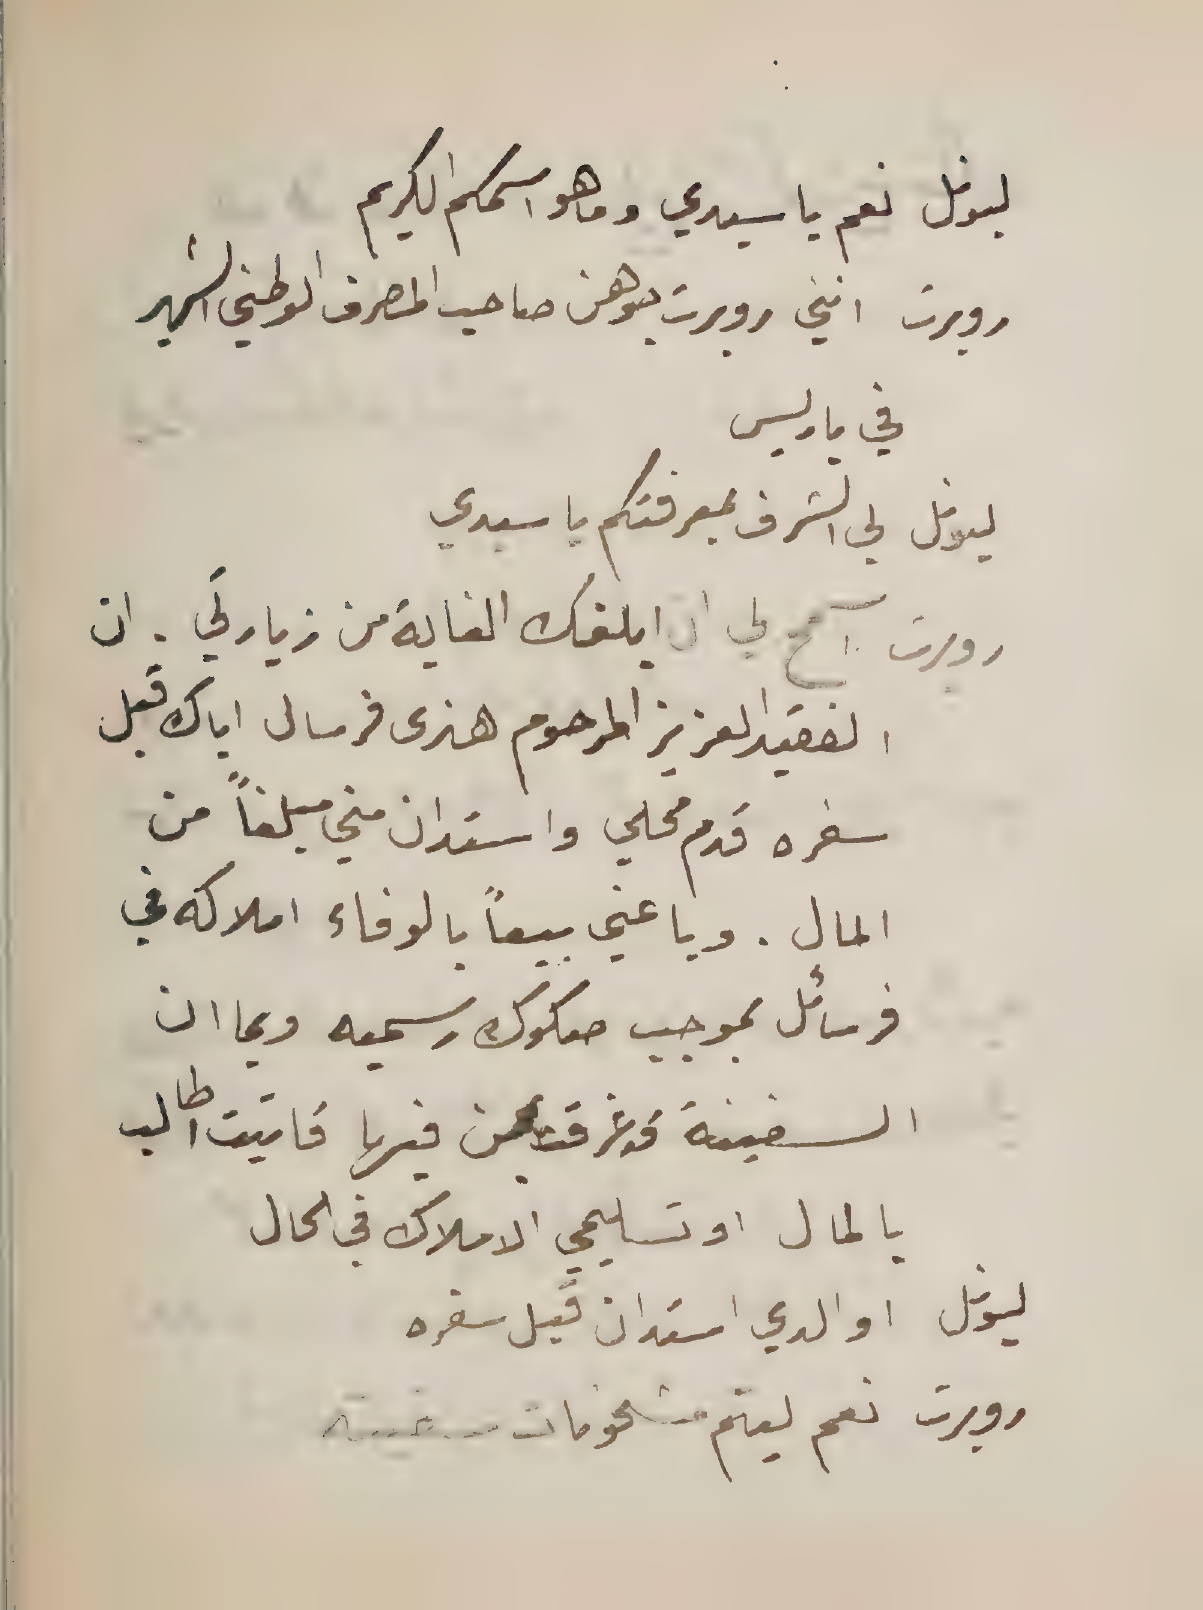 ليونل نعم يا سيدي وما هو اسمكم الكريم
روبرت انني روبرت يوهن صاحب المصرف الوطني الشهير
في باريس
ليونل لي الشرف بمعرفتكم يا سيدي
روبرت اسمح لي ان ابلغك الغاية من زيارتي . ان
الفقيد العزيز المرحوم هنري فرسال اباك قبل
سفره قدم محلي واستدان مني مبلغاً من
المال . وباعني بيعاً بالوفاء املاكه في
فرسائل بموجب صكوك رسميه وبما ان
السفينة قد غرقت بمن فيها فاتيت اطالب
بالمال او تسليمي الاملاك في الحال
ليونل اوالدي استدان قبل سفره
روبرت نعم ليتم مشحونات سفينته